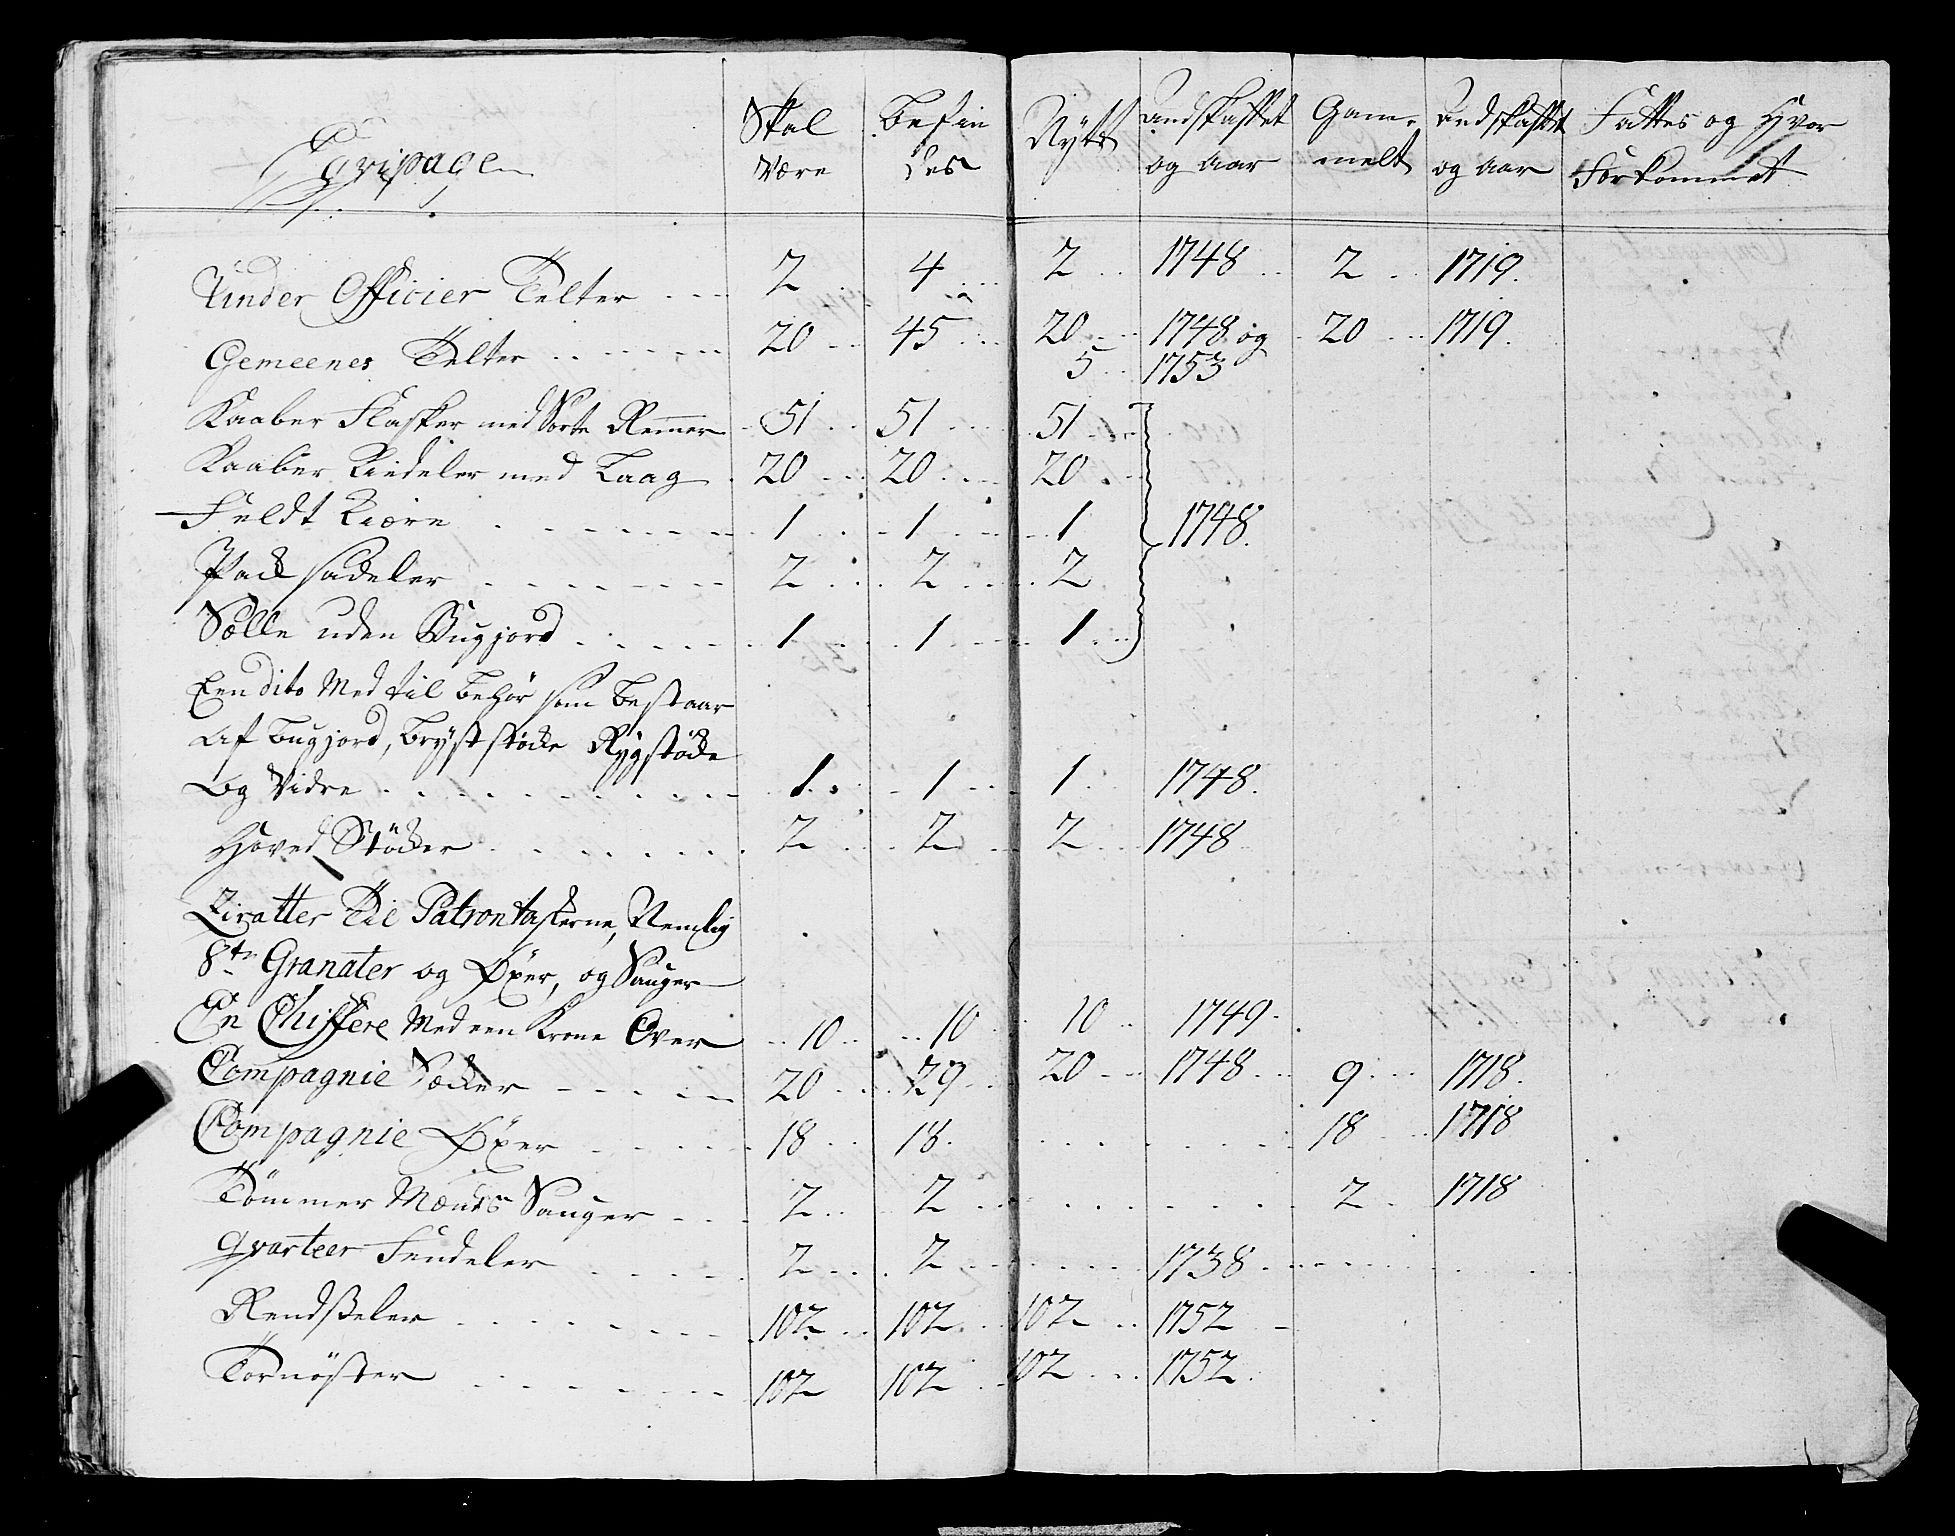 Eqvipage
Skal Være
Befindes
Nÿtt
andskaffet og aar
Gammelt
andskaffet og aar
Fattes og Hvor Forkommet
Under Officier Telter 2 4 2 1748 2 1719
Gemeenes Telter 20 45 20 1748 og 20 1719
5 1753
Kaaber Flasker med Sorte Remmer 51 51 51
Kaaber Kiedeler med Laag 20 20 20
Feldt Kiære 1 1 1 1748
Pack sadeler 2 2 2
Sælle uden Bugjord 1 1 1
Een dito Med til behør som bestaar
Af bugjord, brÿststöcke Rÿgstöcke
Og Vidre 1 1 1 1748
Hoved Stöcker 2 2 2 1748
Ziratter Til Patrontaskerne, Nemlig
8te Granater og Øxer, og Sauger
En Chiffere Med een Krone Over 10 10 10 1749
Compagnie Säcker 20 29 20 1748 9 1718
Compagnie Øxer 18 18 18 1718
Tömmer Mænds Sauger 2 2 2 1718
qvarteer Fendeler 2 2 1738
Rendsßeler 102 102 102 1752
Tornöster 102 102 102 1752